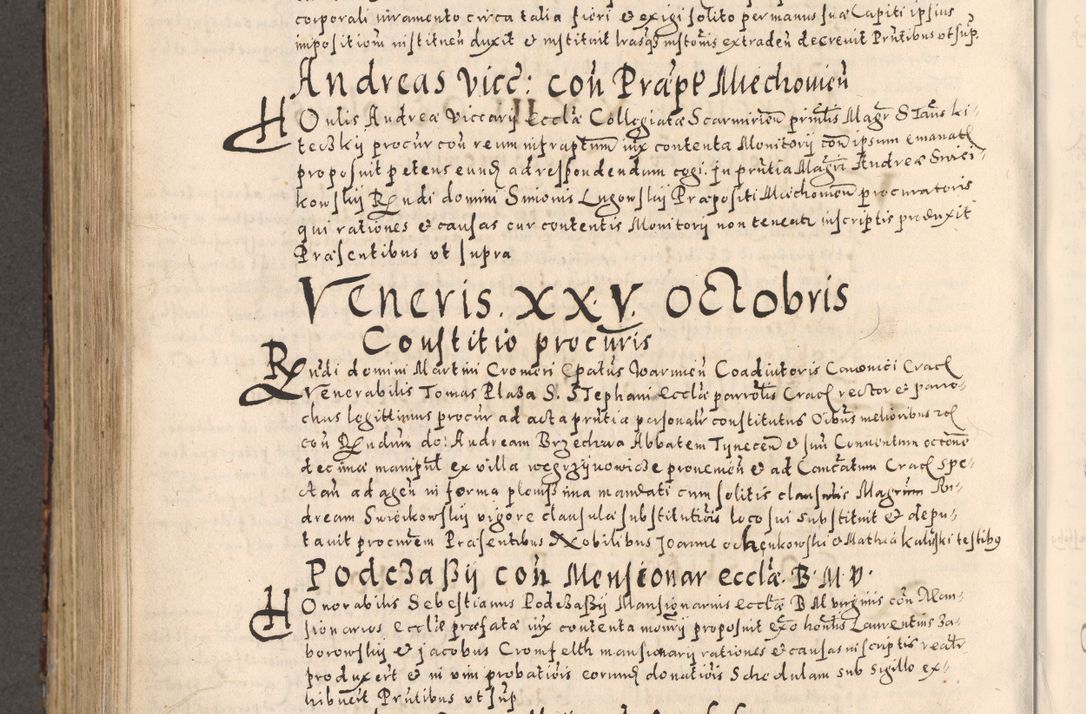 corporali iuramento circa talia fieri et exigi solito per manus suæ Capiti ipsius
impositiom institueñ duxit et instituit extradeñ decrevit Pñtibus ut sup.
Andreas Vicč: coñ Præpt Miechovieñ
HOnlis Andreæ Viccarij Ecclæ Collegiatæ Scarmirieñ Magr STaus Li-
teczkij procur coñ reum infraptum iux contenta Monitorij coñ ipsum emanat
proposuit petens eund ad respondendum cogi. In pñtia Magri Andreæ Swiei-
kowskij Rndi domini Simonis Lugowskij Præpositi Miechovieñ procuratoris
qui rationes et causas cur contentis Monitorij non teneat in scriptis produxit
Præsentibus ut supra
Veneris. XXV. Octobris
Constitio procuris
Rndi domini Martini Cromeri Epatus Warmieñ Coadiutoris Canonici Crac
Venerabilis Tomas Plaza S. STephani Ecclæ parrolis Crac rector et parro-
chus legittimus procur ad acta pñtia personalr constitutus Oibus melioribus
coñ Rndum do: Andream Brzechwa Abbatem Tynecen et suu Conventum
decimæ manipul ex villa wegrzijnowicze provenieñ et ad Cancatum Crac spe-
ctañ ad ageñ in forma plenissima mandati cum solitis clausulis Magrum An-
dream Swieikowskij vigore clausulæ substitutiois loco sui substituit et depu-
tavit procurem Præsentibus Nobilibus Joanne ochenkowski et Mathia kaliński testibus
Podczaßij coñ Mensionar ecclæ B. M. V.
HOnorabilis Sebestianus Podczaßij Mansionarius ecclæ B M virginis coñ Men-
sionarios ecclæ præfatæ iux contenta proposuit exo honlis Laurentius Za-
borowskij et jacobus Cromfelth mansionarij rationes et causas in scriptis
produxert et in vim probatiois eorund donatiois Schedulam sub sigillo ex-
hibuerit Pñtibus ut sup